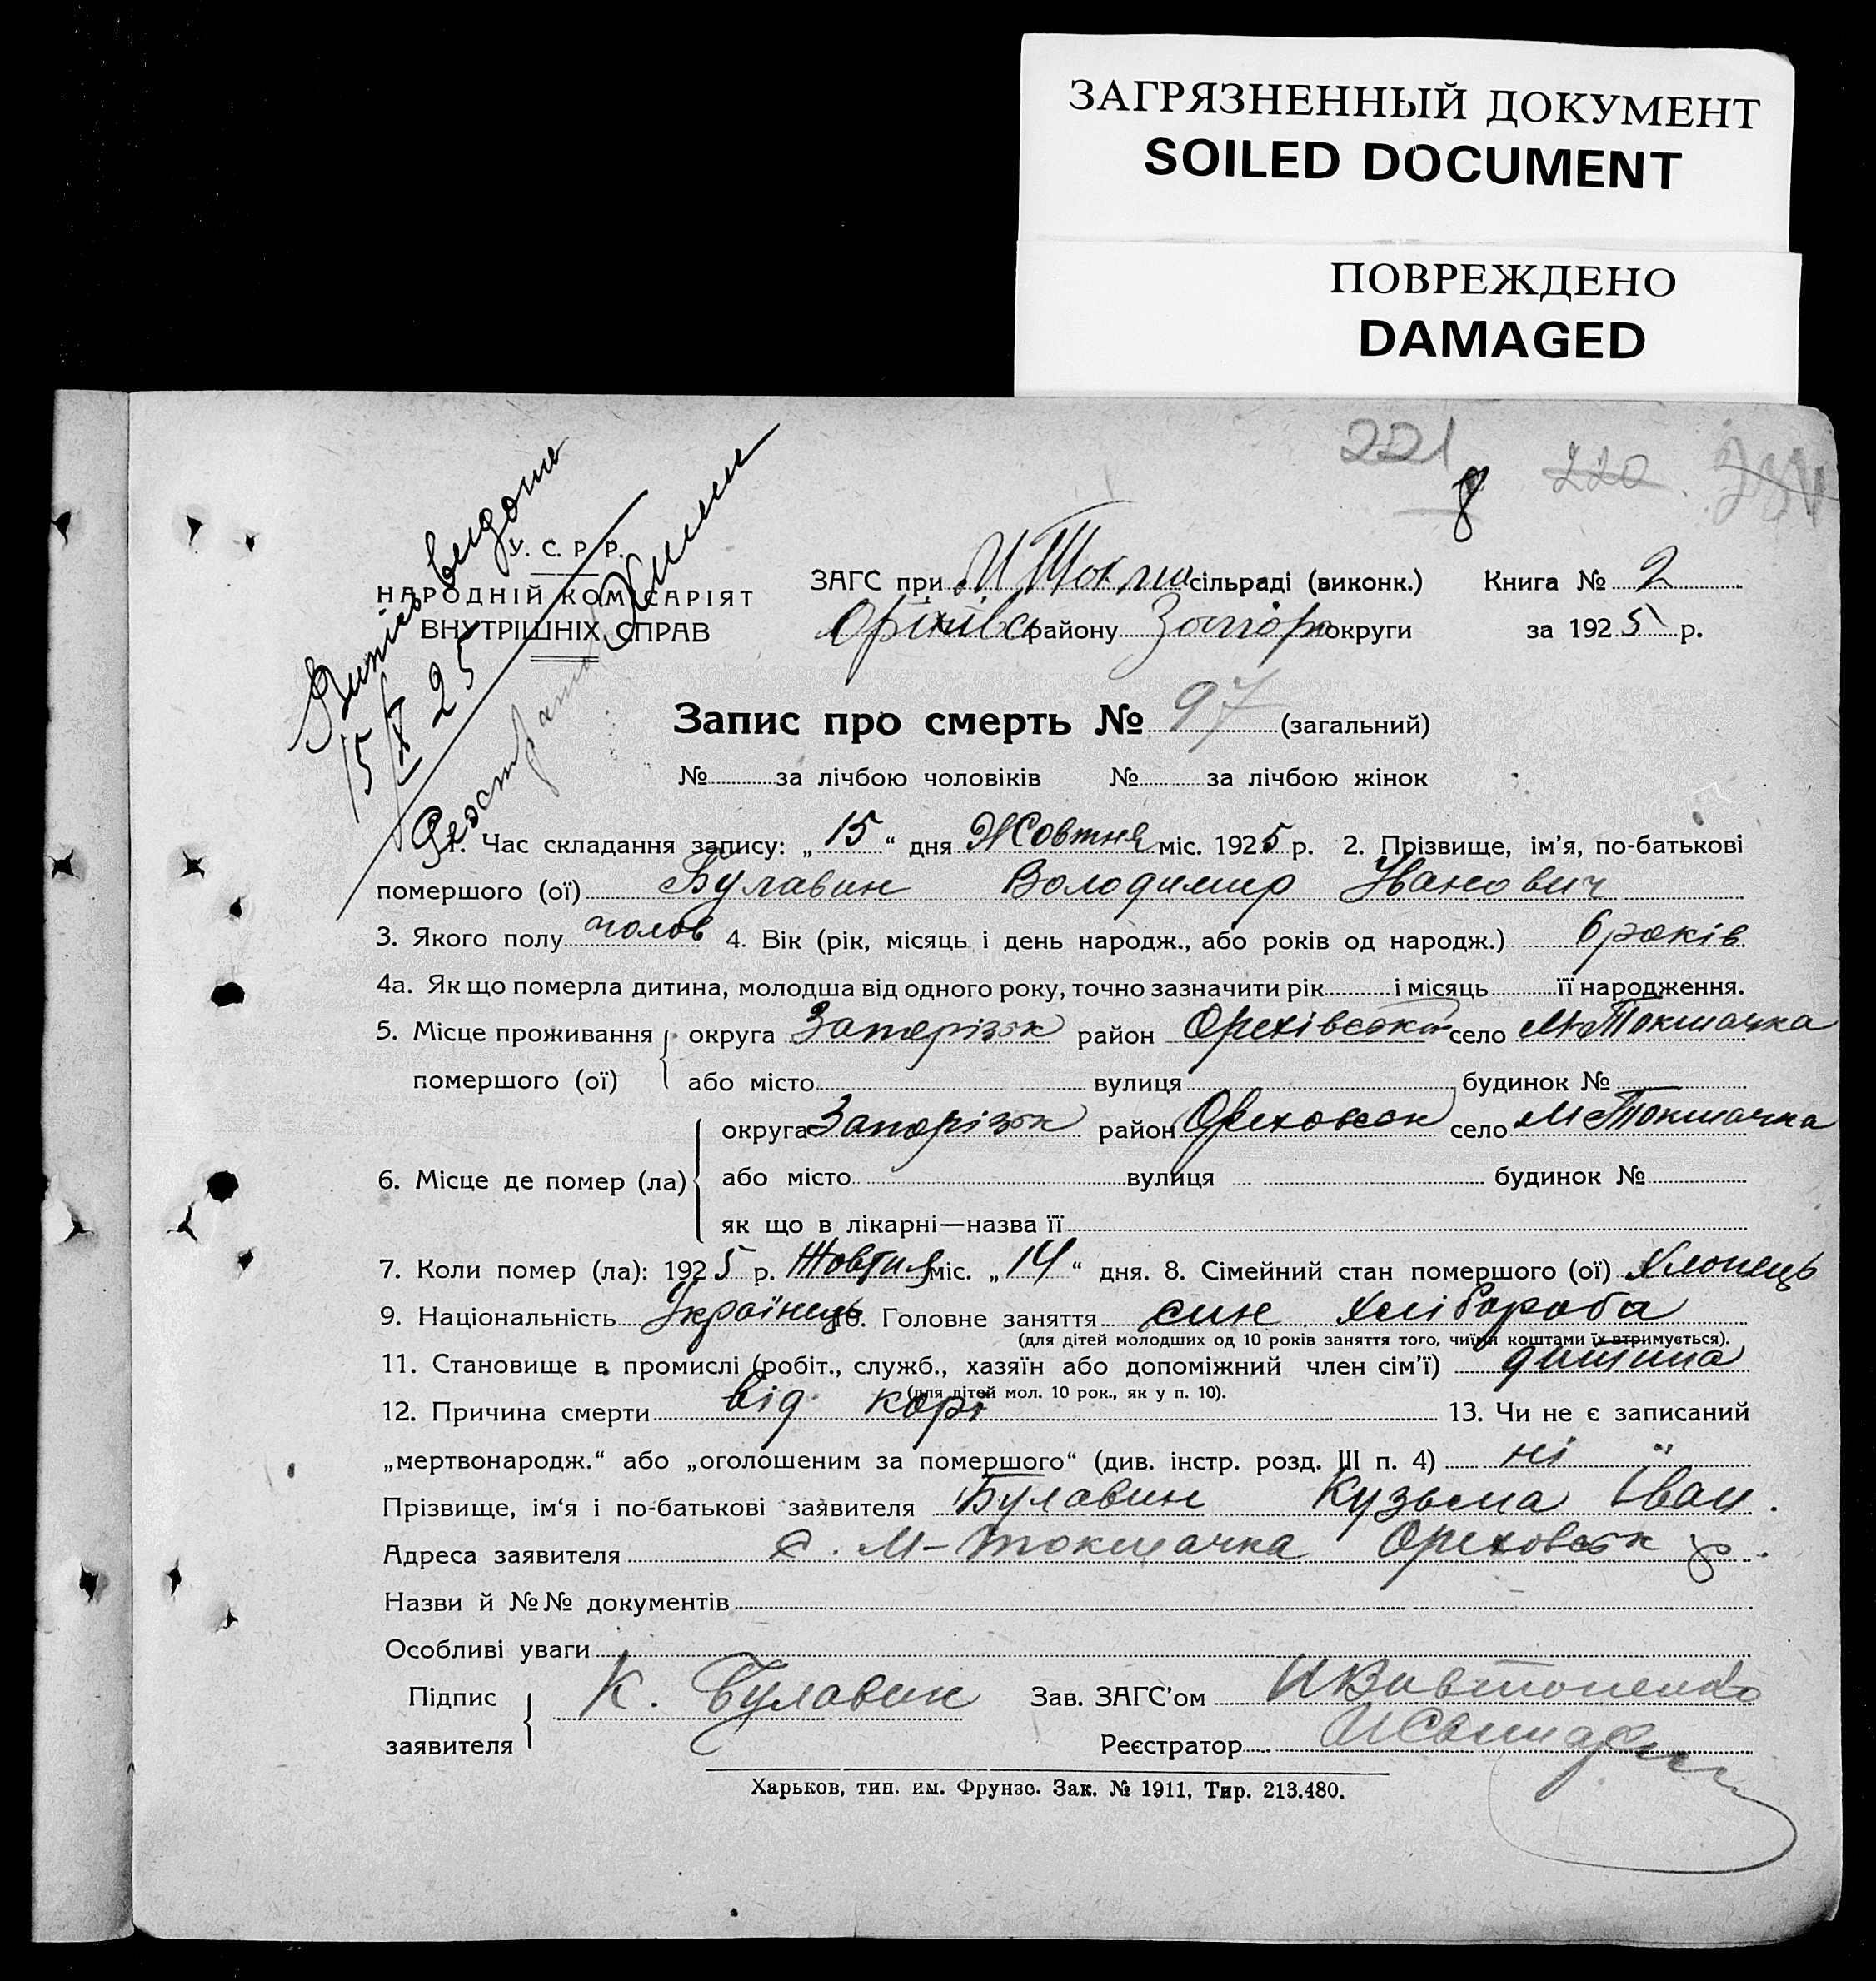 ЗАГРЯЗНЕННЫЙ ДОКУМЕНТ
SOILED DOCUMENT
ПОВРЕЖДЕНО
DAMAGED
221
8
220
Витпісь видана
15/X 25
У. С. Р. Р.
НАРОДНІЙ КОМІСАРІЯТ
ВНУТРІШНІХ СПРАВ
ЗАГС при М Токма сільраді (виконк.) Книга № 2
Оріхівсь району Запор округи за 1925 р.
Запис про смерть № 97 (загальний)
№ за лічбою чоловіків № за лічбою жінок
1. Час складання запису: „15“ дня Жовтня міс. 1925 р. 2. Прізвище, ім’я, по-батькові
помершого (ої) Булавин Володимир Іванович
3. Якого полу чолов 4. Вік (рік, місяць і день народж., або років од народж.) 6 років
4а. Як що померла дитина, молодша від одного року, точно зазначити рік і місяць її народження.
5. Місце проживання округа Запорізьк район Орехівської село М-Токмачка
помершого (ої) або місто вулиця будинок №
округа Запорізьк район Ореховськ село М Токмачка
6. Місце де помер (ла) або місто вулиця будинок №
як що в лікарні—назва її
7. Коли помер (ла): 1925 р. Жовтня міс. „14“ дня. 8. Сімейний стан помершого (ої) хлопець
9. Національність Українець 10. Головне заняття син хлібороба
(для дітей молодших од 10 років заняття того, чиїми коштами їх втримується).
11. Становище в промислі (робіт., служб., хазяїн або допоміжний член сім’ї) дитина
(для дітей мол. 10 рок., як у п. 10).
12. Причина смерти від корі 13. Чи не є записаний
„мертвонародж.“ або „оголошеним за помершого“ (див. інстр. розд. III п. 4) ні
Прізвище, ім‘я і по-батькові заявителя Булавин Кузьма Іван.
Адреса заявителя с. М-Токмачка Ореховськ р.
Назви й №№ документів
Особливі уваги
Підпис заявителя К. Булавин Зав. ЗАГС’ом
Реєстратор
Харьков, тип. им. Фрунзе. Зак. № 1911, Тир. 213.480.